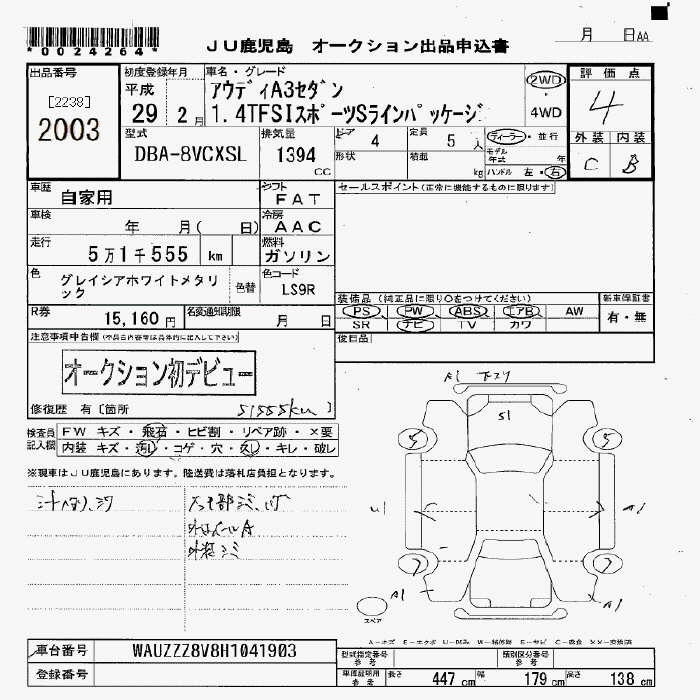 *0024264*
JU鹿児島 オークション出品申込書
月 日AA
出品番号
[2238]
2003
初度登録年月
平成
29 2月
車名・グレード
アウディA3セダン
1.4TFSIスポーツSラインパッケージ
2WD
・
4WD
評価点
4
外装 内装
C B
型式
DBA-8VCXSL
排気量
1394
cc
ドア 4
定員 5人
形状
積載 kg
ディーラー・並行
モデル年式 年
ハンドル 左・右
車歴
自家用
シフト
FAT
車検
年 月( 日)
冷房
AAC
走行
5万1千555 km
燃料
ガソリン
色
グレイシアホワイトメタリック
色替
色コード
LS9R
R券
15,160円
名変通知期限
月 日
セールスポイント(正常に機能するものに限ります)
装備品 (純正品に限り○をつけてください)
新車保証書
PS PW ABS エアB AW
有・無
SR ナビ TV カワ
後日品
注意事項申告欄
オークション初デビュー
修復歴 有[箇所 51555km]
検査員記入欄
FW キズ・飛石・ヒビ割・リペア跡・×要
内装 キズ・汚レ・コゲ・穴・スレ・キレ・破レ
※現車はJU鹿児島にあります。陸送費は落札店負担となります。
A1 下スリ
S1
5 5
A1
7 7
A1 A1
スペア
車台番号
WAUZZZ8V8H1041903
登録番号
型式指定番号
参考
類別区分番号
参考
車庫証明用
参考
長さ 447 cm
幅 179 cm
高さ 138 cm